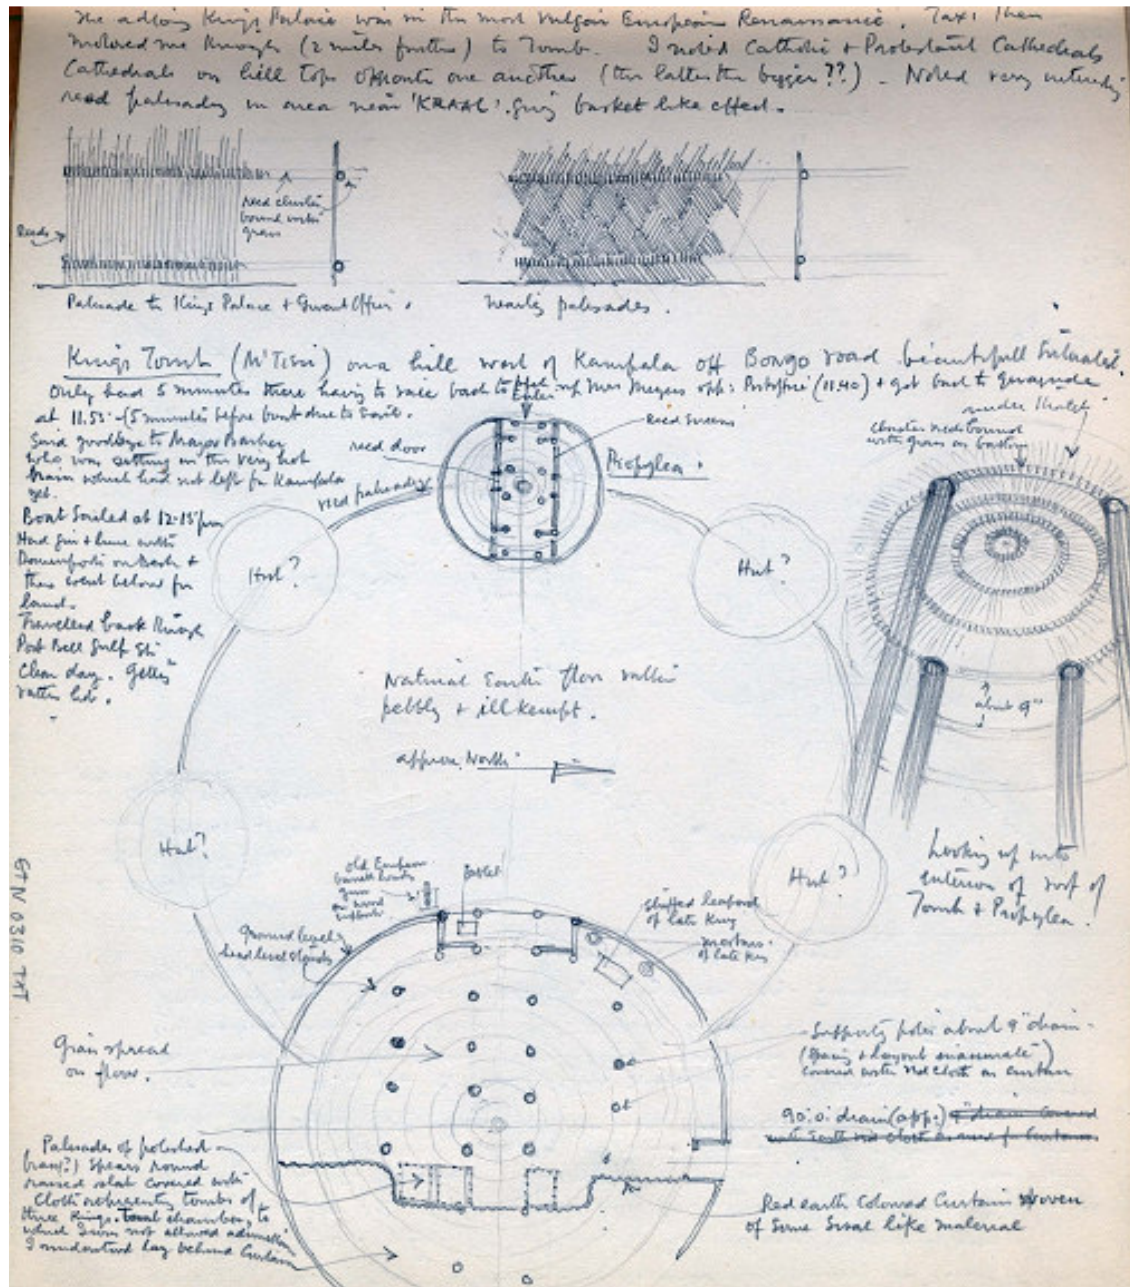 The King's Palace was in the most vulgar European Renaissance. Taxi then
motored me through (2 miles further) to Tomb. I noted Catholic + Protestant Cathedrals
Cathedrals on hill tops opposite one another (the latter the bigger??) - Noted very
reed palisading in area near 'KRAAL' giving basket like effect.
Reeds
reed cluster
bound with
grass
Palisade to Kings Palace +
nearby palisades.
Kings Tomb (M'Tesi) on a hill west of Kampala off Bongo road beautifull Situated.
Only had 5 minutes there having to race back to up Mrs opp: Postoffice (11.40) + got back to
at 11.55 - (5 minutes before boat due to sail.
Said goodbye to Major
who was sitting in the very hot
train which had not left for Kampala
yet.
Boat Sailed at 12.15 pm
Had gin + lime with
on Deck +
then went below for
Travelled back through
Port Bell Gulf
Clear day. Getting
rather hot.
reed door
reed palisade
Enter
Reed Screens
Propylea.
under thatch
cluster reed bound
with grass as
Hut?
Hut?
Natural Earth floor rather
pebbly + ill kempt.
about 9"
approx. North
Hut?
Hut?
Looking up into
interior of roof of
Tomb + Propylea!
old European
guns
on wood
supports
2'
Tablet
stuffed leopard
of late King
of late King
ground level
head level
Grass spread
on floor.
Supports poles about 9" diam -
(spacing + layout inaccurate)
covered with red cloth as curtain
90'.0" diam (app.)
Palisades of polished
(brass?) spears round
raised slab covered with
Cloth representing tombs of
three Kings. Tomb chamber, to
which I was not allowed admission
I understood lay behind Curtain
Red earth Coloured Curtain Woven
of Some Sisal like material
GTN 0310 TXT